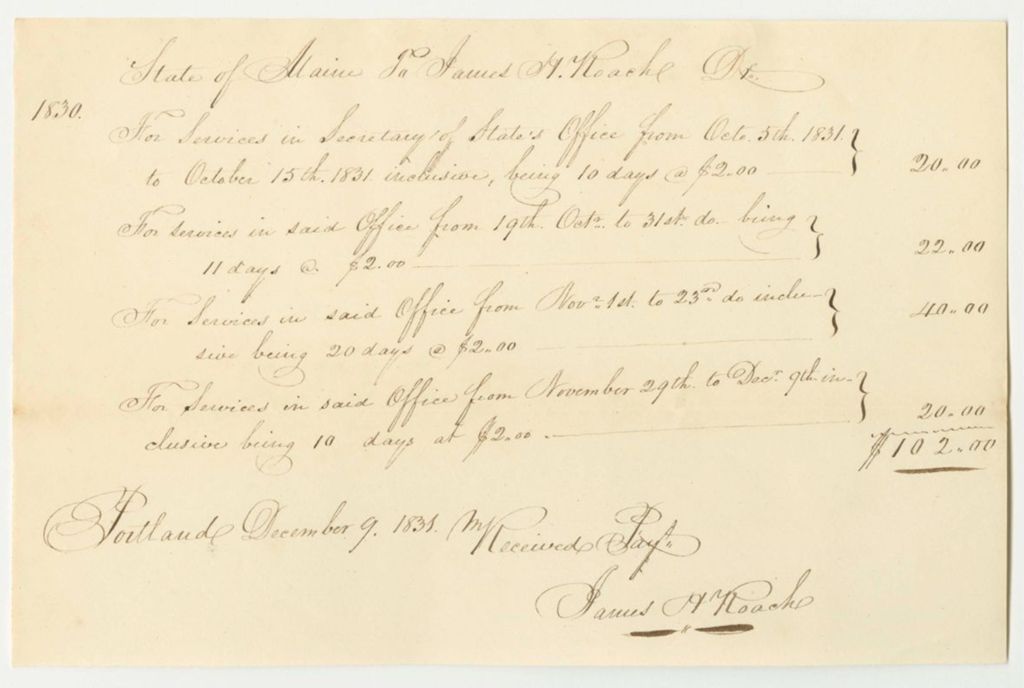 State of Maine To James H. Roach Dr.
1830.
For Services in Secretary of State's Office from Octo. 5th. 1831.
to October 15th. 1831 inclusive, being 10 days @ $2.00 20.00
For services in said Office from 19th. Octr. to 31st. do. being
11 days @ $2.00 22.00
For Services in said Office from Novr. 1st. to 23rd. do inclu-
sive being 20 days @ $2.00 40.00
For Services in said Office from November 29th. to Decr. 9th. in-
clusive being 10 days at $2.00 20.00
$102.00
Portland December 9. 1831. Received Payt.
James H Roach